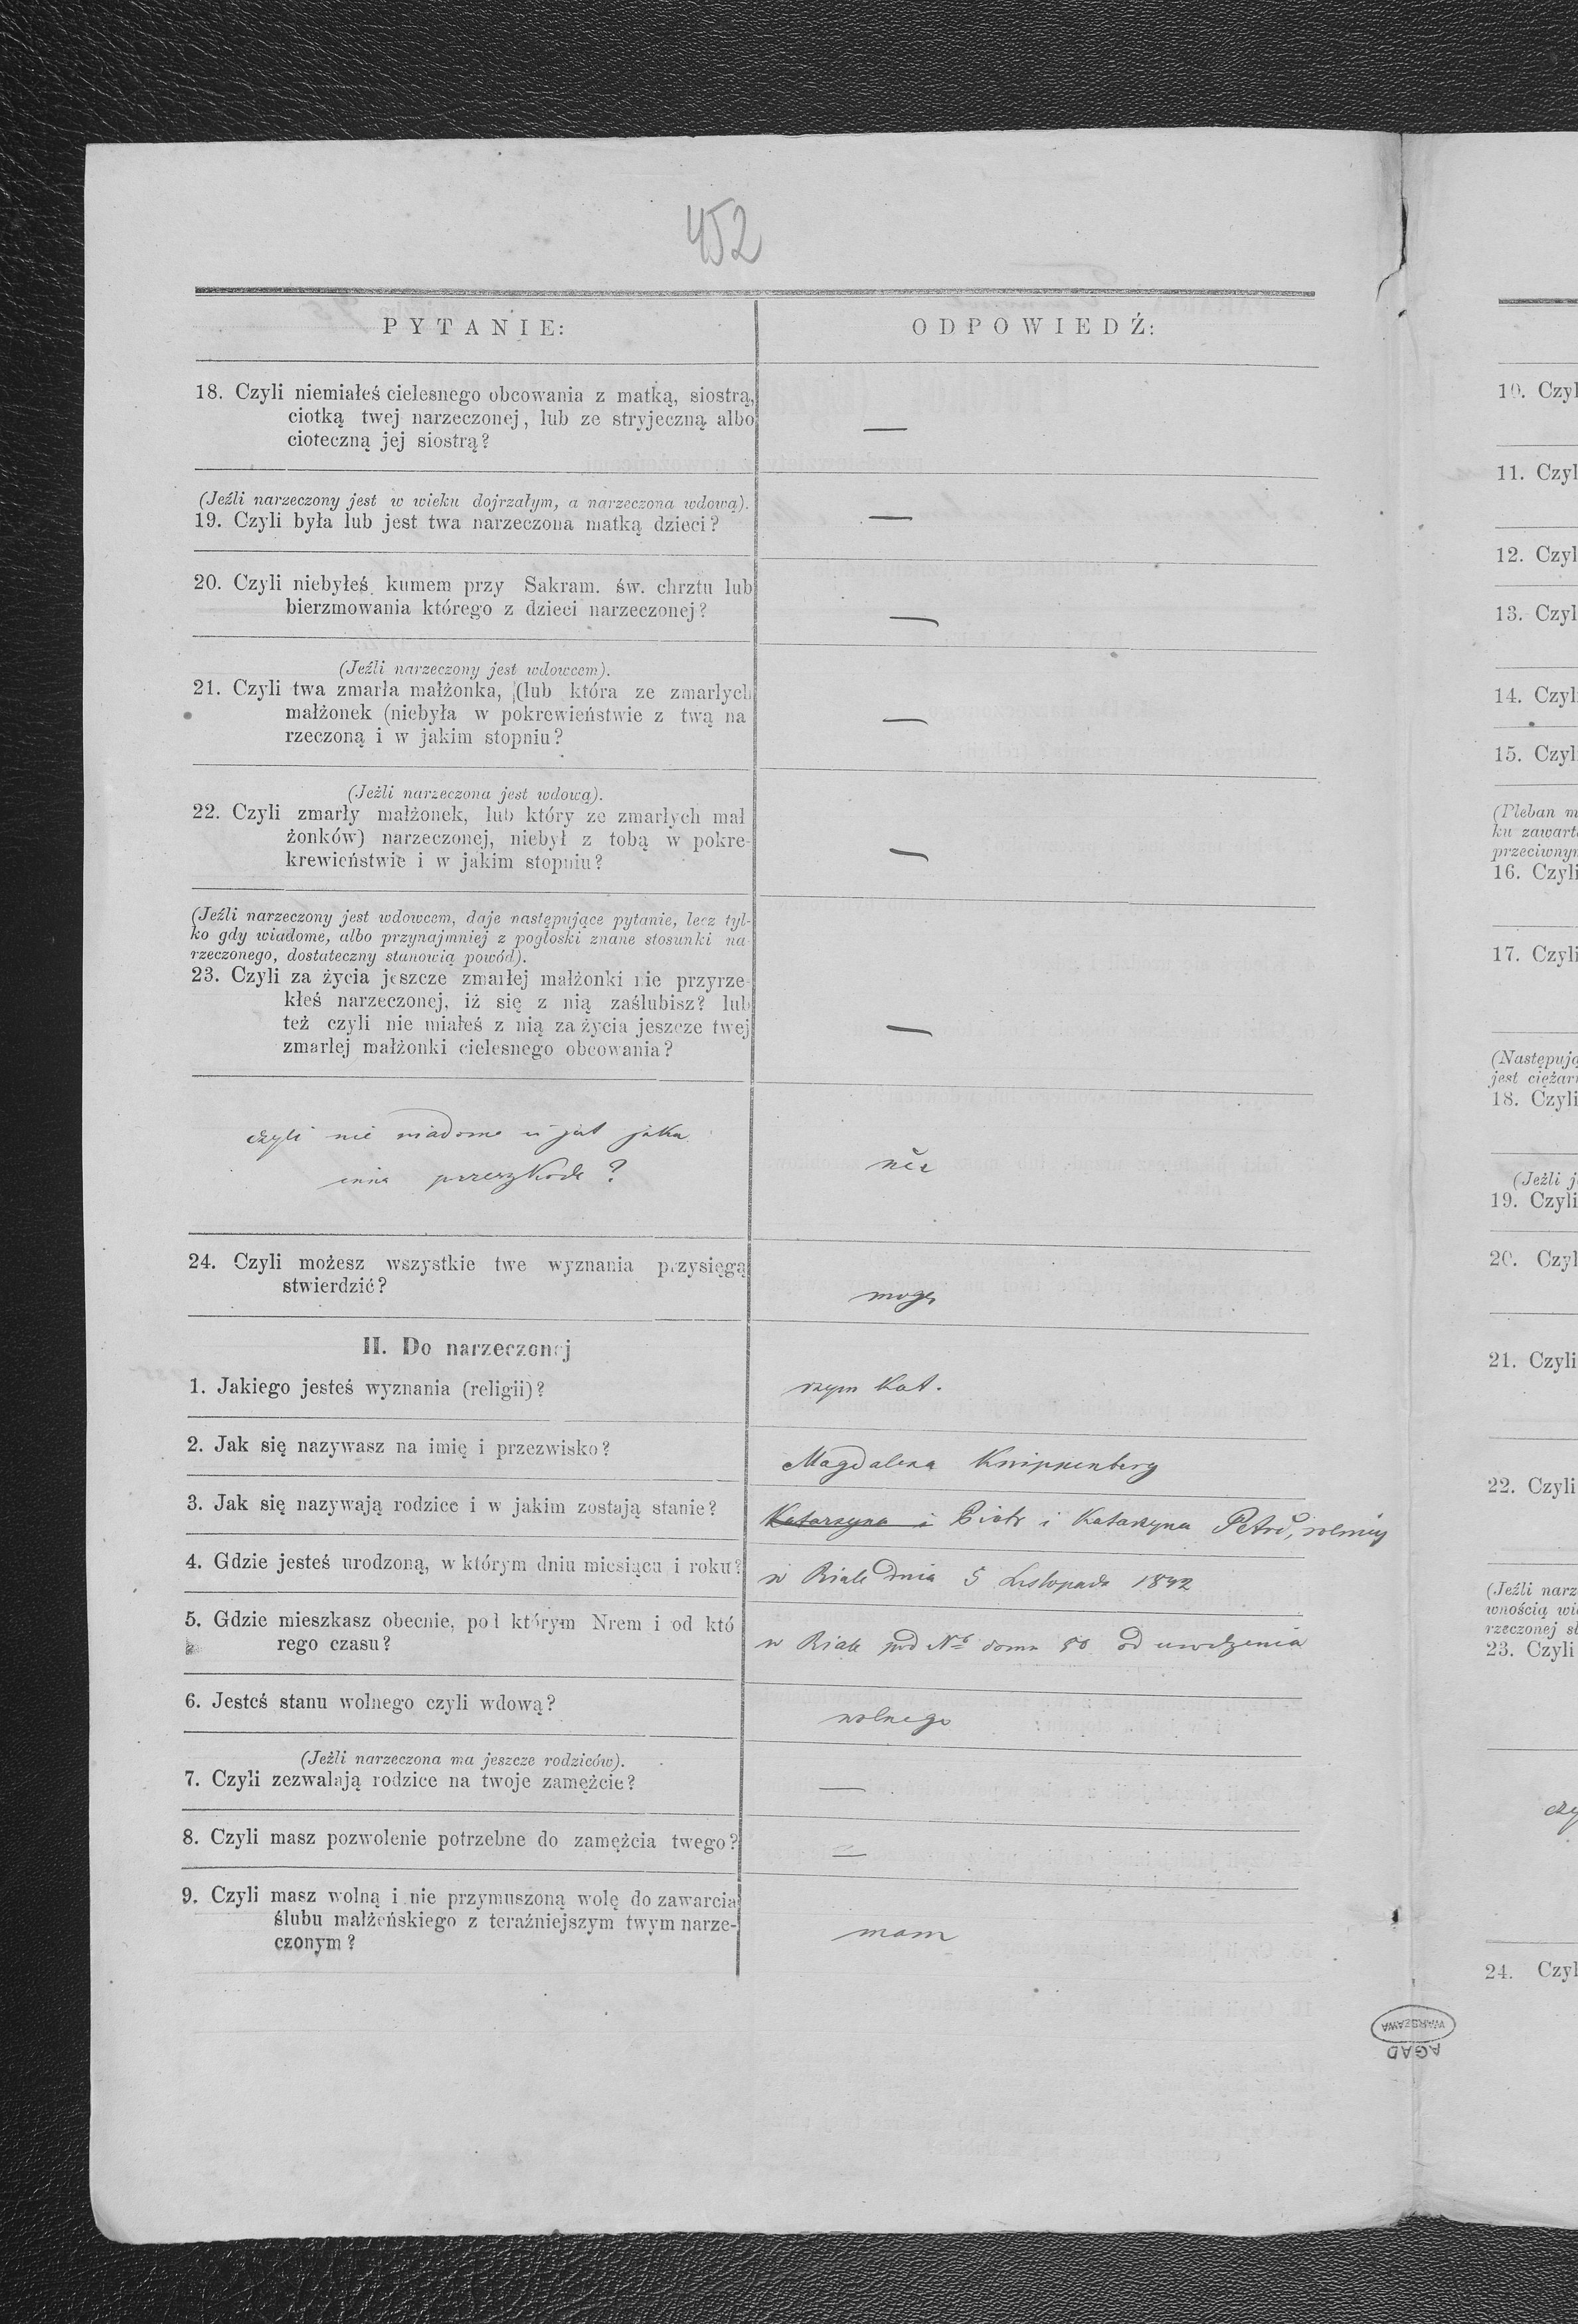 452
PYTANIE:
ODPOWIEDŹ:
18. Czyli niemiałeś cielesnego obcowania z matką, siostrą,
ciotką twej narzeczonej, lub ze stryjeczną albo
cioteczną jej siostrą?
—
(Jeźli narzeczony jest w wieku dojrzałym, a narzeczona wdową).
19. Czyli była lub jest twa narzeczona matką dzieci?
—
20. Czyli niebyłeś kumem przy Sakram. św. chrztu lub
bierzmowania którego z dzieci narzeczonej?
—
(Jeźli narzeczony jest wdowcem).
21. Czyli twa zmarła małżonka, (lub która ze zmarłych
małżonek (niebyła w pokrewieństwie z twą na
rzeczoną i w jakim stopniu?
—
(Jeżli narzeczona jest wdową).
22. Czyli zmarły małżonek, lub który ze zmarłych mał
żonków) narzeczonej, niebył z tobą w pokre-
krewieństwie i w jakim stopniu?
—
(Jeźli narzeczony jest wdowcem, daje następujące pytanie, lecz tyl-
ko gdy wiadome, albo przynajmniej z pogłoski znane stosunki na
rzeczonego, dostateczny stanowią powód).
23. Czyli za życia jeszcze zmarłej małżonki nie przyrze-
kłeś narzeczonej, iż się z nią zaślubisz? lub
też czyli nie miałeś z nią za życia jeszcze twej
zmarłej małżonki cielesnego obcowania?
—
czyli nie wiadoma ci jest jaka
inna przeszkoda?
nie
24. Czyli możesz wszystkie twe wyznania przysięgą
stwierdzić?
mogę
II. Do narzeczonej
1. Jakiego jesteś wyznania (religii)?
rzym kat.
2. Jak się nazywasz na imię i przezwisko?
Magdalena Knippenberg
3. Jak się nazywają rodzice i w jakim zostają stanie?
Katarzyna i Piotr i Katarzyna Petri, rolnicy
4. Gdzie jesteś urodzoną, w którym dniu miesiącu i roku?
w Biale dnia 5 Listopada 1842
5. Gdzie mieszkasz obecnie, pod którym Nrem i od któ
rego czasu?
w Biale pod No domu 50 od urodzenia
6. Jesteś stanu wolnego czyli wdową?
wolnego
(Jeżli narzeczona ma jeszcze rodziców).
7. Czyli zezwalają rodzice na twoje zamężcie?
—
8. Czyli masz pozwolenie potrzebne do zamężcia twego?
—
9. Czyli masz wolną i nie przymuszoną wolę do zawarcia
ślubu małżeńskiego z teraźniejszym twym narze-
czonym?
mam
10. Czyl
11. Czyl
12. Czyl
13. Czyl
14. Czyl
15. Czyl
(Pleban m
ku zawart
przeciwnyn
16. Czyli
17. Czyli
(Następują
jest ciężar
18. Czyli
(Jeżli j
19. Czyli
20. Czyl
21. Czyli
22. Czyli
(Jeźli narz
wnością wi
rzeczonej s
23. Czyli
czy
24. Czyl
WARSZAWA
AGAD